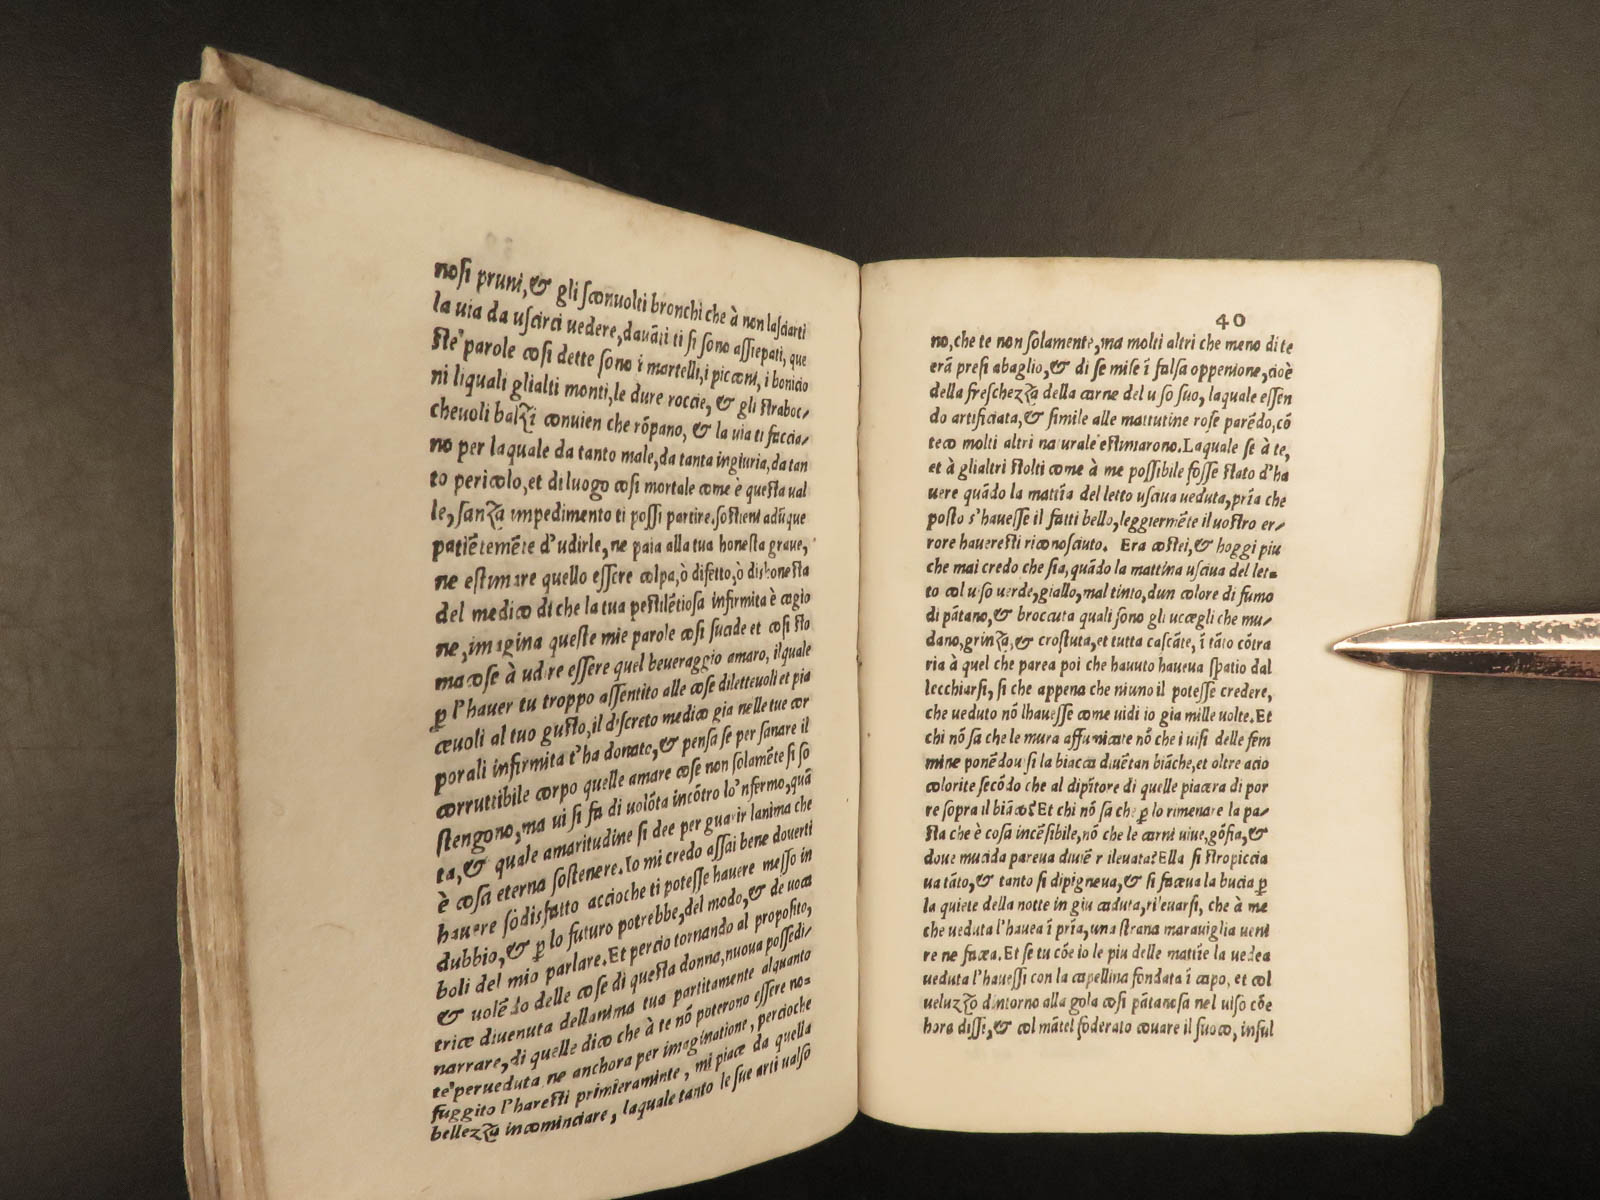 nosi pruni, & gli sconuolti bronchi che à non lasciarti
la uia da uscirci uedere, dauāti ti si sono assiepati, que
ste' parole cosi dette sono i martelli, i picconi, i bonicio
ni liquali glialti monti, le dure roccie, & gli straboc-
cheuoli balzi conuien che rōpano, & la uia ti faccia-
no per laquale da tanto male, da tanta ingiuria, da tan
to pericolo, et di luogo cosi mortale come è questa ual
le, sanza impedimento ti possi partire. sostieni adūque
patiētemēte d'udirle, ne paia alla tua honesta graue,
ne estimare quello essere colpa, ò difetto, ò dishonesta
del medico di che la tua pestilētiosa infirmita è cagio
ne, imagina queste mie parole cosi sucide et cosi sto
macose à udire essere quel beueraggio amaro, ilquale
ꝑ l'hauer tu troppo assentito alle cose diletteuoli et pia
ceuoli al tuo gusto, il discreto medico gia nelle tue cor
porali infirmita t'ha donato, & pensa se per sanare il
corruttibile corpo quelle amare cose non solamēte si so
stengono, ma ui si fa di uolōta incōtro lo'nfermo, quā
ta, & quale amaritudine si dee per guarir lanima che
è cosa eterna sostenere. Io mi credo assai bene douerti
hauere sodisfatto accioche ti potesse hauere messo in
dubbio, & ꝑ lo futuro potrebbe, del modo, & de uoca
boli del mio parlare. Et percio tornando al proposito,
& uolēdo delle cose di questa donna, nuoua possedi-
trice diuenuta dellanima tua partitamente alquanto
narrare, di quelle dico che à te nō poterono essere no-
te' perueduta ne anchora per imaginatione, percioche
fuggito l'haresti primieraminte, mi piace da quella
bellezza incominciare, laquale tanto le sue arti ualso
40
no, che te non solamente, ma molti altri che meno di te
erā presi abaglio, & di se mise ī falsa oppenione, cioè
della freschezza della carne del uiso suo, laquale essen
do artificiata, & simile alle mattutine rose parēdo, cō
teco molti altri naturale estimarono. Laquale se à te,
et à glialtri stolti come à me possibile fosse stato d'ha
uere quādo la mattīa del letto usciua ueduta, prīa che
posto s'hauesse il fatti bello, leggiermēte il uostro er-
rore hauereste riconosciuto. Era costei, & hoggi piu
che mai credo che sia, quādo la mattina usciua del let-
to col uiso uerde, giallo, mal tinto, dun colore di fumo
di pātano, & broccuta quali sono gli uccegli che mu-
dano, grinza, & crostuta, et tutta cascāte, ī tāto cōtra
ria à quel che parea poi che hauuto haueua spatio dal
lecchiarsi, si che appena che niuno il potesse credere,
che ueduto nō lhauesse come uidi io gia mille uolte. Et
chi nō sa che le mura affumicate nō che i uisi delle fem
mine ponēdoui si la biacca diuētan biāche, et oltre acio
colorite secōdo che al dipītore di quelle piacera di por
re sopra il biāco? Et chi nō sa che ꝑ lo rimenare la pa-
sta che è cosa incēsibile, nō che le carni uiue, gōfia, &
doue mucida pareua diuiē rileuata? Ella si stropiccia
ua tāto, & tanto si dipigneua, & si facea la bucia ꝑ
la quiete della notte in giu caduta, ri'euarsi, che à me
che ueduta l'hauea ī prīa, una strana marauiglia ueni
re ne facea. Et se tu cōe io le piu delle mattīe la uedea
ueduta l'hauessi con la capellina fondata ī capo, et col
ueluzzo dintorno alla gola cosi pātanosa nel uiso cōe
hora dissi, & col mātel foderato couare il fuoco, insul